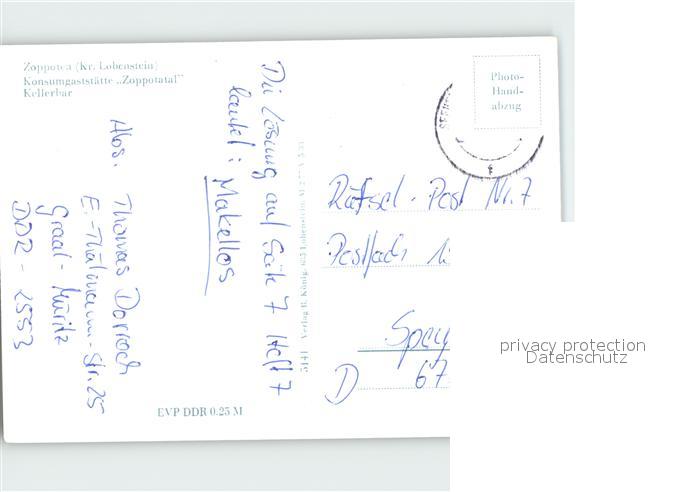 Zoppoten (Kr. Lobenstein)
Konsumgaststätte „Zoppotatal"
Kellerbar
Die Lösung auf Seite 7 Heft 7
lautet: Makellos
Abs. Thomas
E.-Thälmann-Str. 25
Graal-Müritz
DDR - 2553
EVP DDR 0.25 M
5141 Verlag R. König, 685 Lobenstein
Photo-
Hand-
abzug
Rätsel-Post Nr. 7
Postfach 1
Spey
D 67
privacy protection
Datenschutz